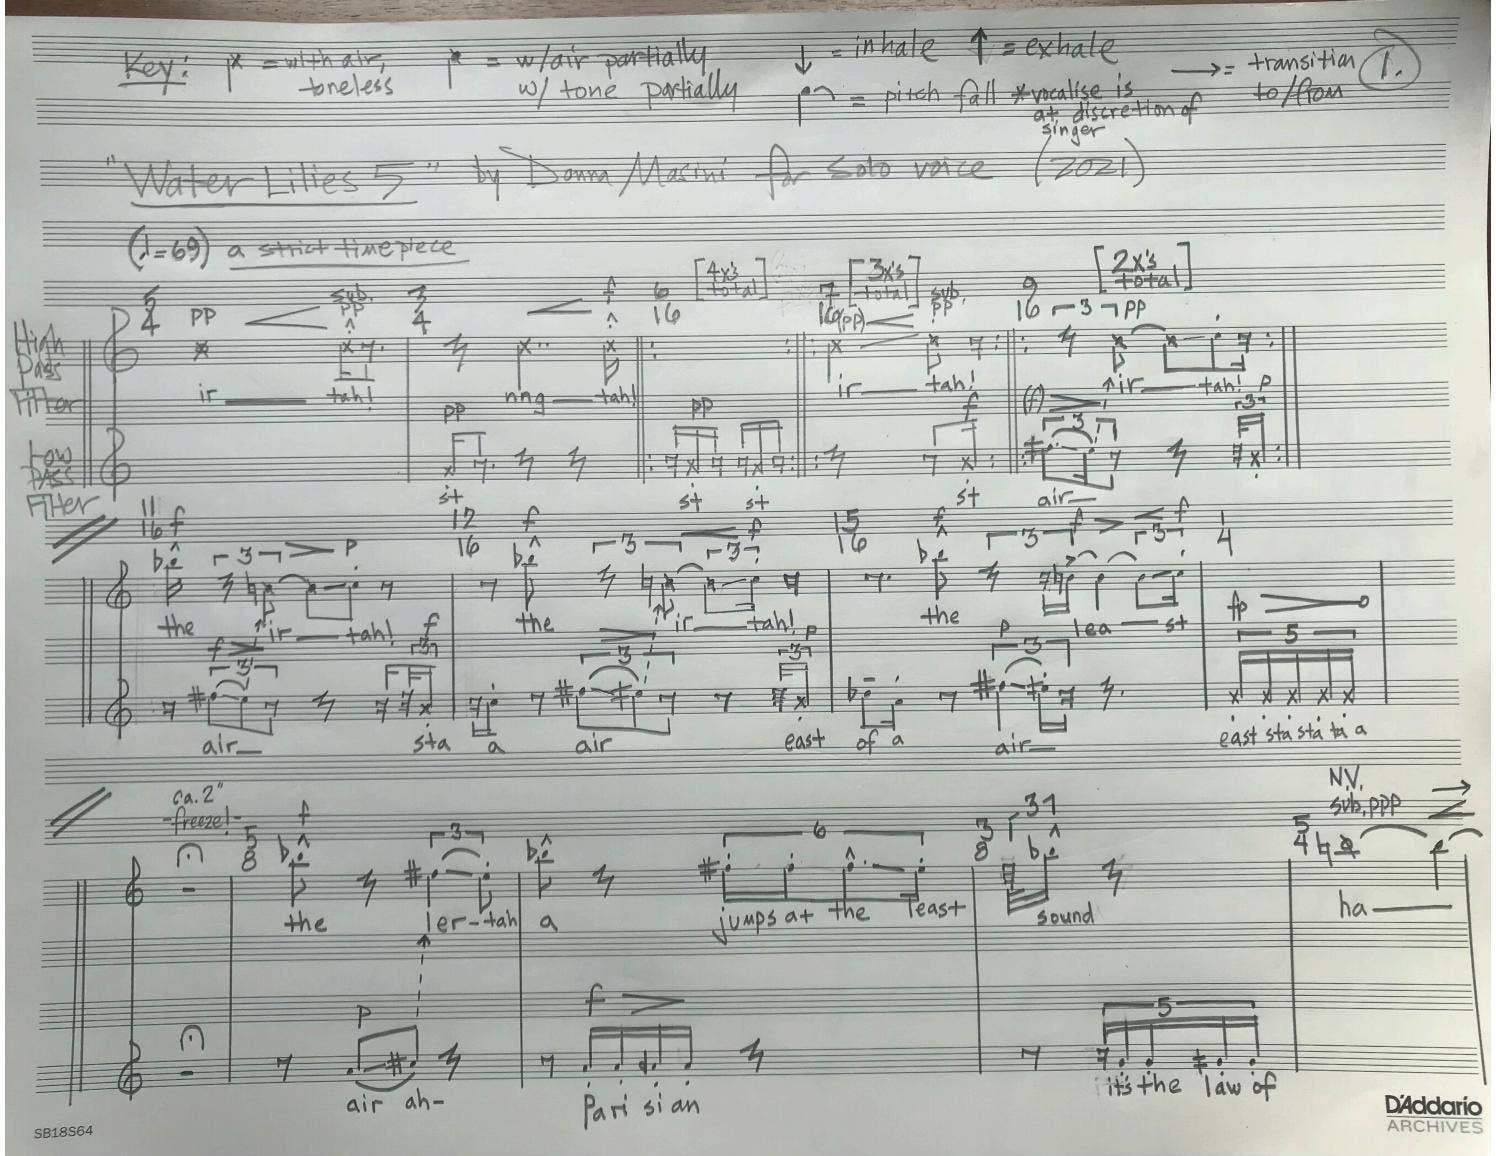 Key: x = with air, toneless x = w/air partially w/ tone partially ↓ = inhale ↑ = exhale → = transition to/from 1.
= pitch fall *vocalise is at discretion of singer
"Water Lilies 5" by Donna Masini for solo voice (2021)
(♩=69) a strict timepiece
5/4 pp sub. pp 3/4 f 6/16 [4x's total] 7/16 [3x's total] (pp) sub. pp 9/16 [2x's total] 3 pp
High Pass Filter
ir tah! nng tah! ir tah! ir tah!
pp pp f (f) 3 p 3
Low PASS Filter
st st st st air
11/16 f 3 p 12/16 f 3 3 f 15/16 f 3 f 3 f 1/4
the ir tah! the ir tah! the lea st
f 3 f 3 3 p 3 p 3 fp 5
air sta a air east of a air east sta sta ta a
ca. 2" -freeze!- 5/8 f 3 6 3/8 3 5/4 N.V. sub. ppp
the ler-tah a jumps at the least sound ha
p f 5
air ah- Pari si an it's the law of
SB18S64
D'Addario
ARCHIVES